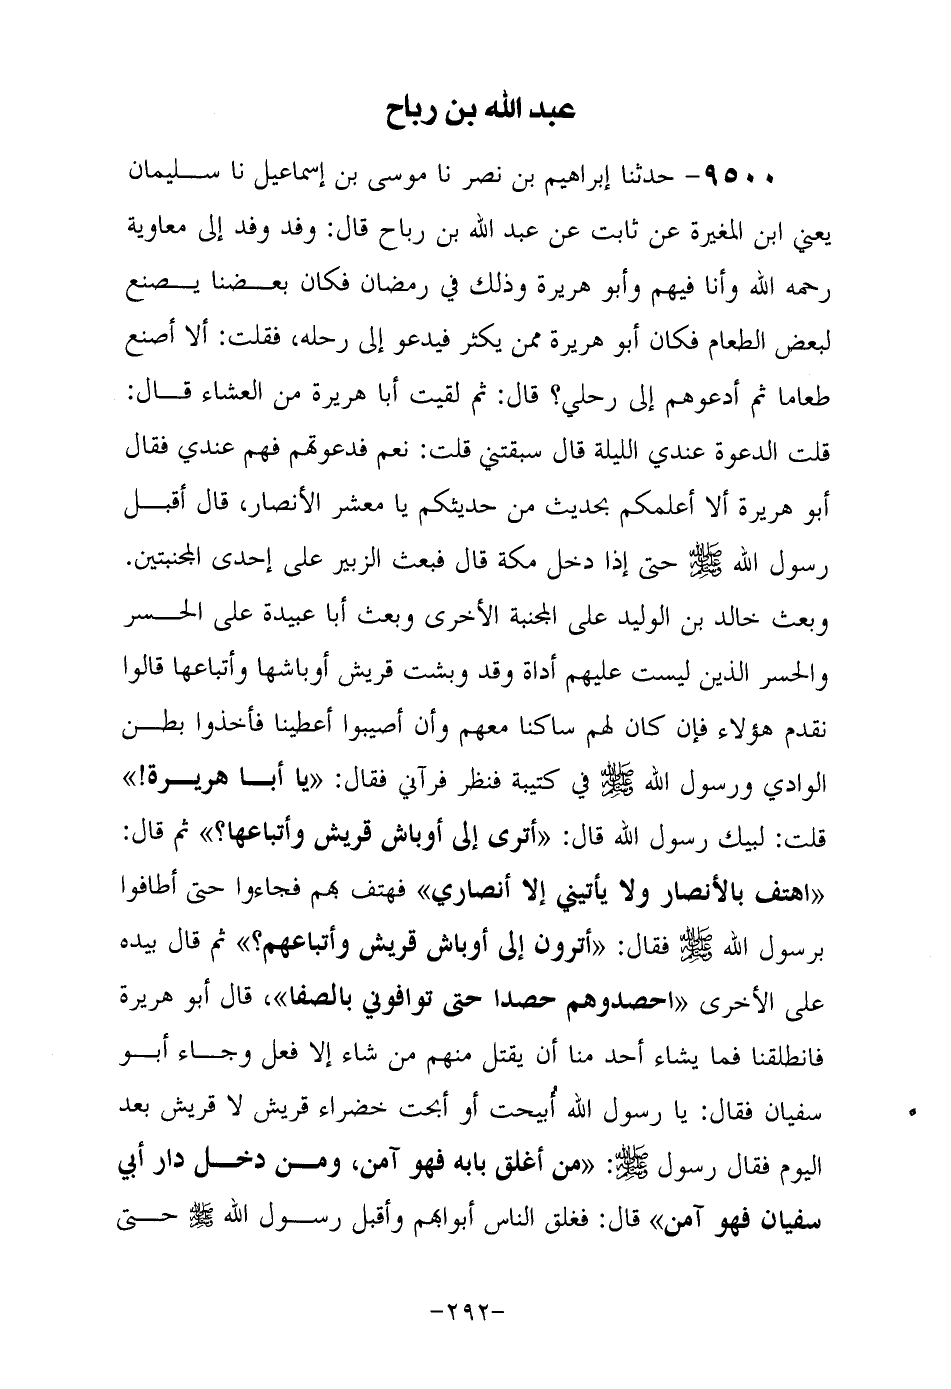 عبد الله بن رباح
٩٥٠٠- حدثنا إبراهيم بن نصر نا موسى بن إسماعيل نا سليمان
يعني ابن المغيرة عن ثابت عن عبد الله بن رباح قال: وفد وفد إلى معاوية
رحمه الله وأنا فيهم وأبو هريرة وذلك في رمضان فكان بعضنا يصنع
لبعض الطعام فكان أبو هريرة ممن يكثر فيدعو إلى رحله، فقلت: ألا أصنع
طعاما ثم أدعوهم إلى رحلي؟ قال: ثم لقيت أبا هريرة من العشاء قال:
قلت الدعوة عندي الليلة قال سبقتني قلت: نعم فدعوتهم فهم عندي فقال
أبو هريرة ألا أعلمكم بحديث من حديثكم يا معشر الأنصار، قال أقبل
رسول الله ﷺ حتى إذا دخل مكة قال فبعث الزبير على إحدى المجنبتين.
وبعث خالد بن الوليد على المجنبة الأخرى وبعث أبا عبيدة على الحسر
والحسر الذين ليست عليهم أداة وقد وبشت قريش أوباشها وأتباعها قالوا
نقدم هؤلاء فإن كان لهم ساكنا معهم وأن أصيبوا أعطينا فأخذوا بطن
الوادي ورسول الله ﷺ في كتيبة فنظر فرآني فقال: «يا أبا هريرة!»
قلت: لبيك رسول الله قال: «أترى إلى أوباش قريش وأتباعها؟» ثم قال:
«اهتف بالأنصار ولا يأتيني إلا أنصاري» فهتف بهم فجاءوا حتى أطافوا
برسول الله ﷺ فقال: «أترون إلى أوباش قريش وأتباعهم؟» ثم قال بيده
على الأخرى «احصدوهم حصدا حتى توافوني بالصفا»، قال أبو هريرة
فانطلقنا فما يشاء أحد منا أن يقتل منهم من شاء إلا فعل وجاء أبو
سفيان فقال: يا رسول الله أُبيحت أو أبحت خضراء قريش لا قريش بعد
اليوم فقال رسول ﷺ: «من أغلق بابه فهو آمن، ومن دخل دار أبي
سفيان فهو آمن» قال: فغلق الناس أبوابهم وأقبل رسول الله ﷺ حتى
-٢٩٢-